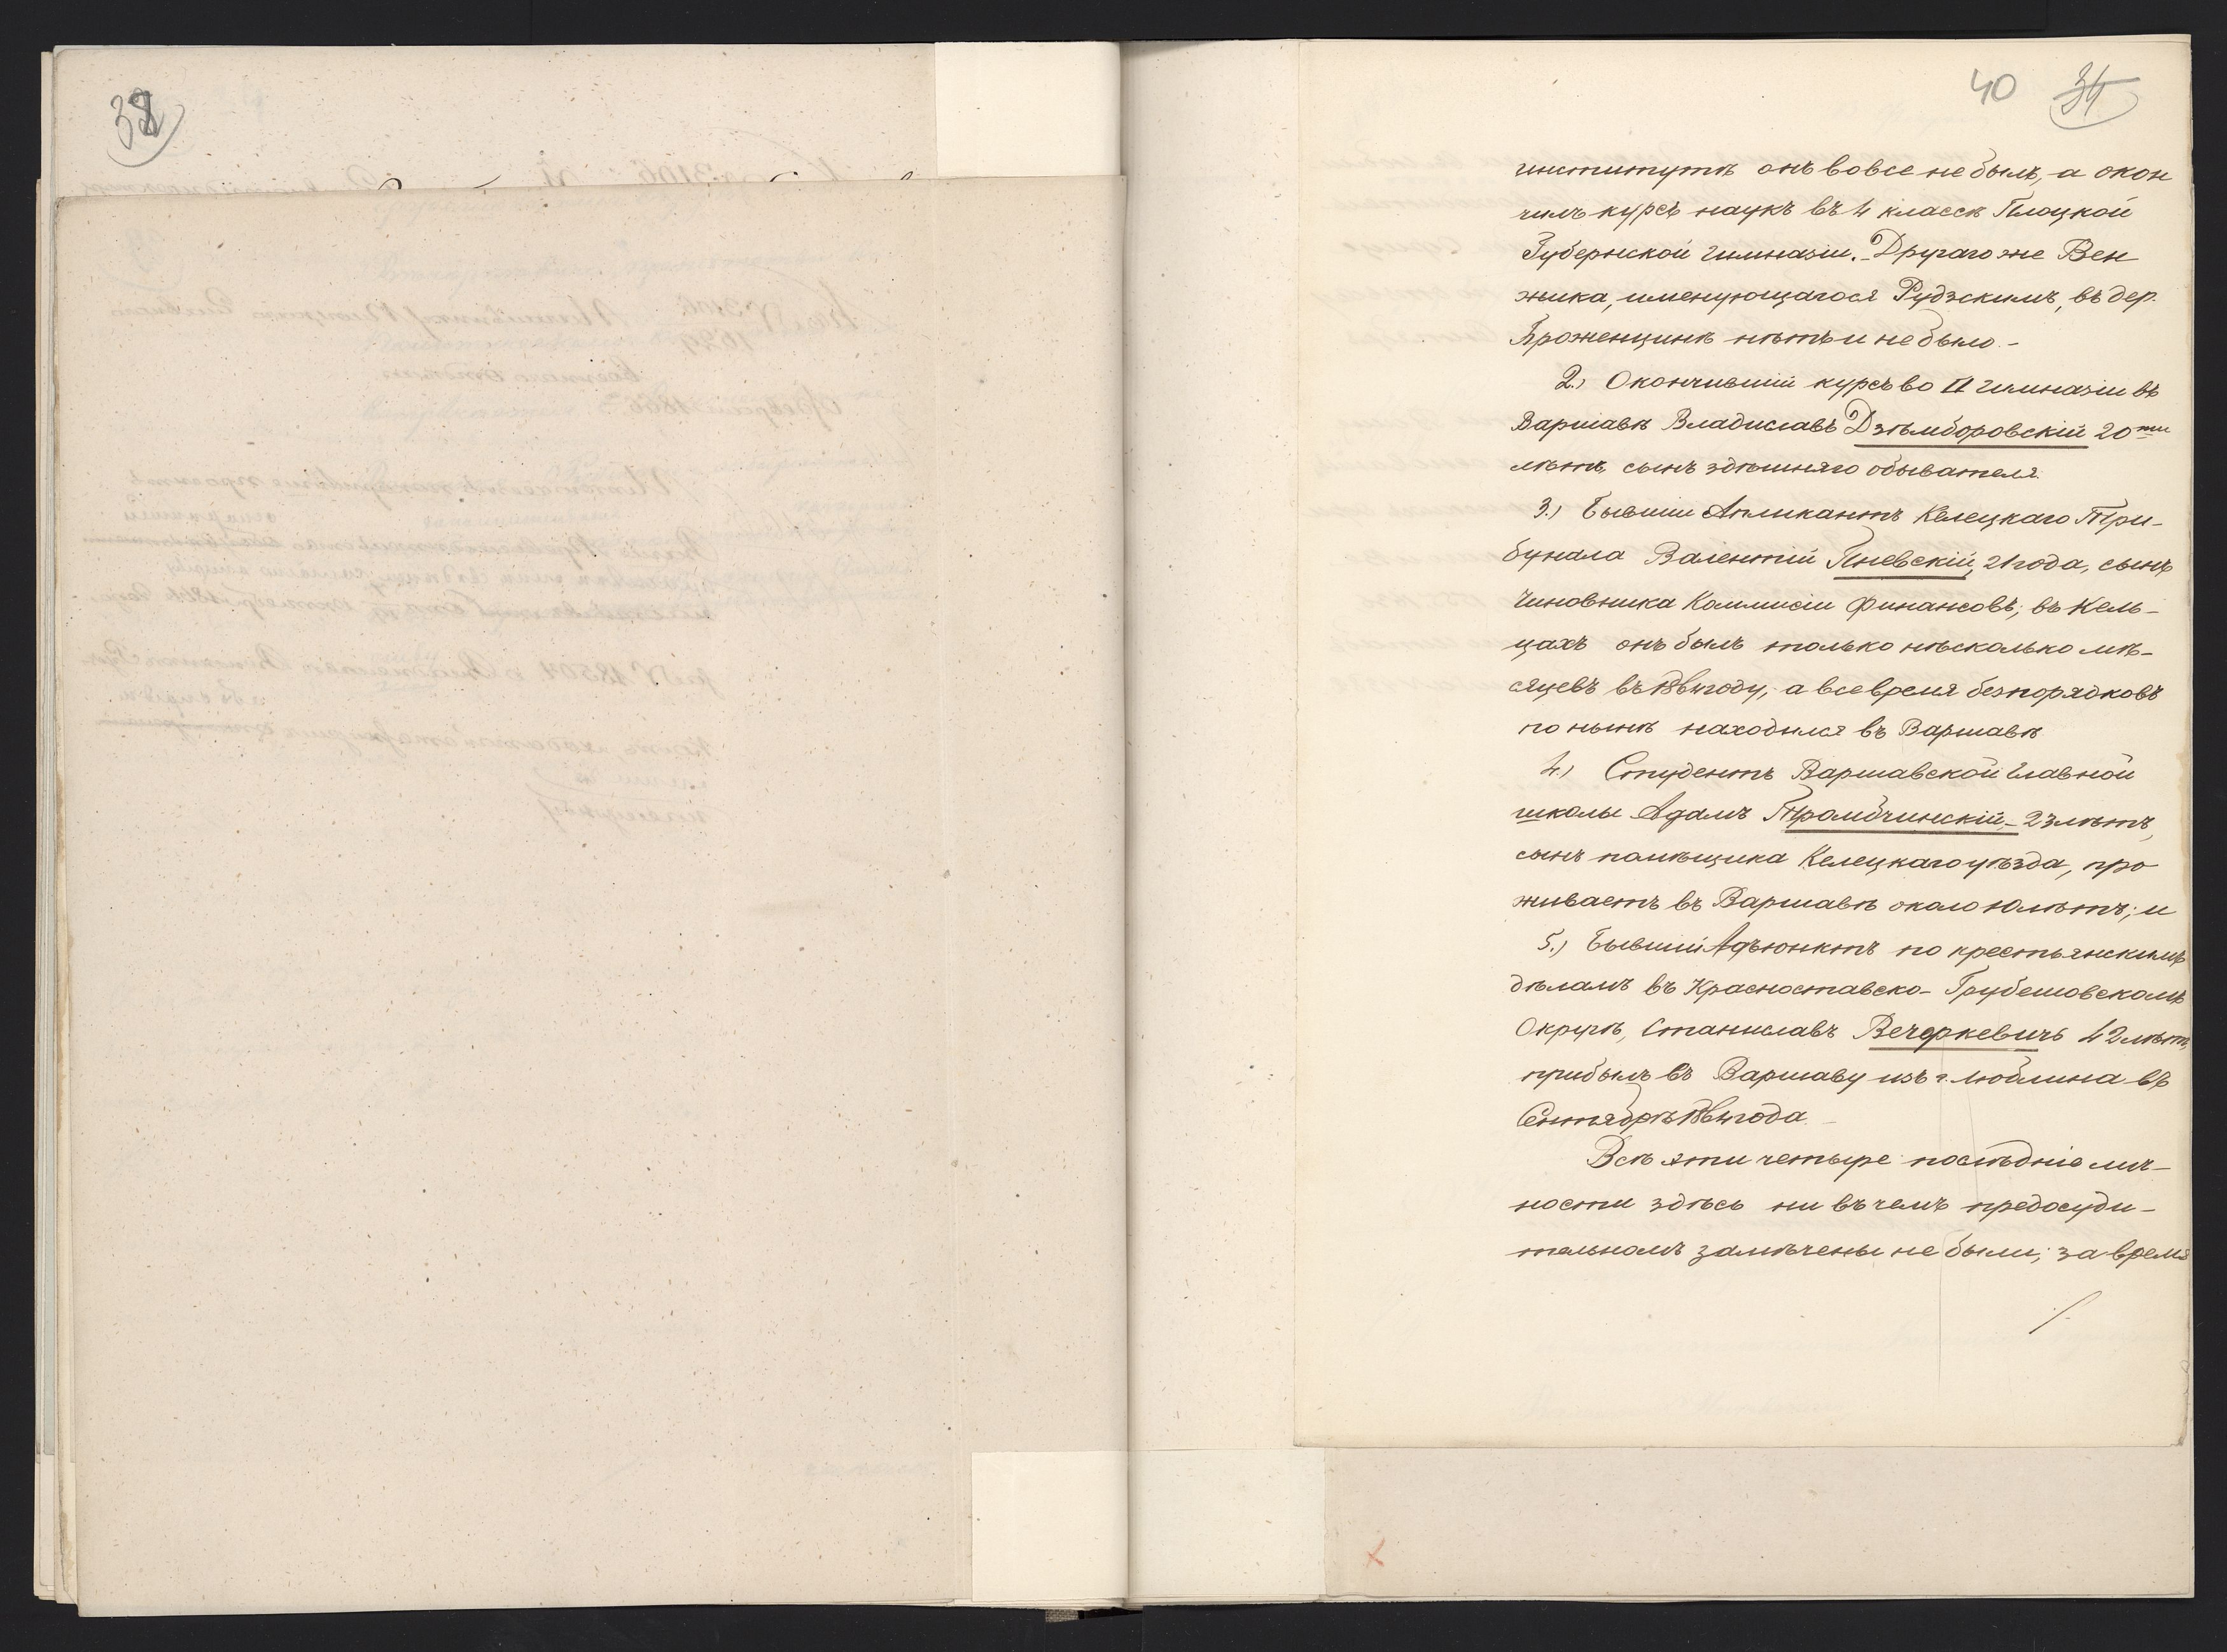 38
40 34
институтѣ онъ вовсе не былъ, а окон
чилъ курсъ наукъ въ 4 классѣ Плоцкой
Губернской гимназіи. Другаго же Вен
жика, именующагося Рудзскимъ, въ дер.
Броженцинѣ нѣтъ и не было. -
2.) Окончившій курсъ во II гимназіи въ
Варшавѣ Владиславъ Дзѣмборовскій 20ти
лѣтъ, сынъ здѣшняго обывателя.
3.) Бывшій Апликантъ Келецкаго Три-
бунала Валентій Пневскій, 21 года, сынъ
чиновника Коммисіи Финансовъ; въ Кель-
цахъ онъ былъ только нѣсколько мѣ-
сяцевъ въ 1864 году, а все время безпорядковъ
по нынѣ находился въ Варшавѣ
4.) Студентъ Варшавской Главной
школы Адамъ Тромбчинскій, - 23 лѣтъ,
сынъ помѣщика Келецкаго уѣзда, про
живаетъ въ Варшавѣ около 10 лѣтъ; и
5.) Бывшій Адъюнктъ по крестьянскимъ
дѣламъ въ Красноставско- Грубешовскомъ
Округѣ, Станиславъ Вечоркевичъ 42 лѣтъ,
прибылъ въ Варшаву изъ г. Люблина въ
Сентябрѣ 1864 года. -
Всѣ эти четыре послѣдніе лич-
ности здѣсь ни въ чемъ предосуди-
тельномъ замѣчены не были; за время
./.